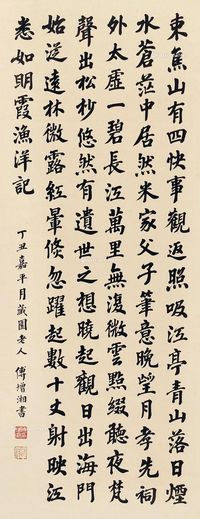 東焦山有四快事觀返照吸江亭青山落日煙
水蒼茫中居然米家父子筆意晚望月孝先祠
外太虛一碧長江萬里無復微雲點綴聽夜梵
聲出松杪悠然有遺世之想曉起觀日出海門
始從遠林微露紅暈倏忽躍起數十丈射映江
悉如明霞漁洋記
丁丑嘉平月藏園老人傅增湘書